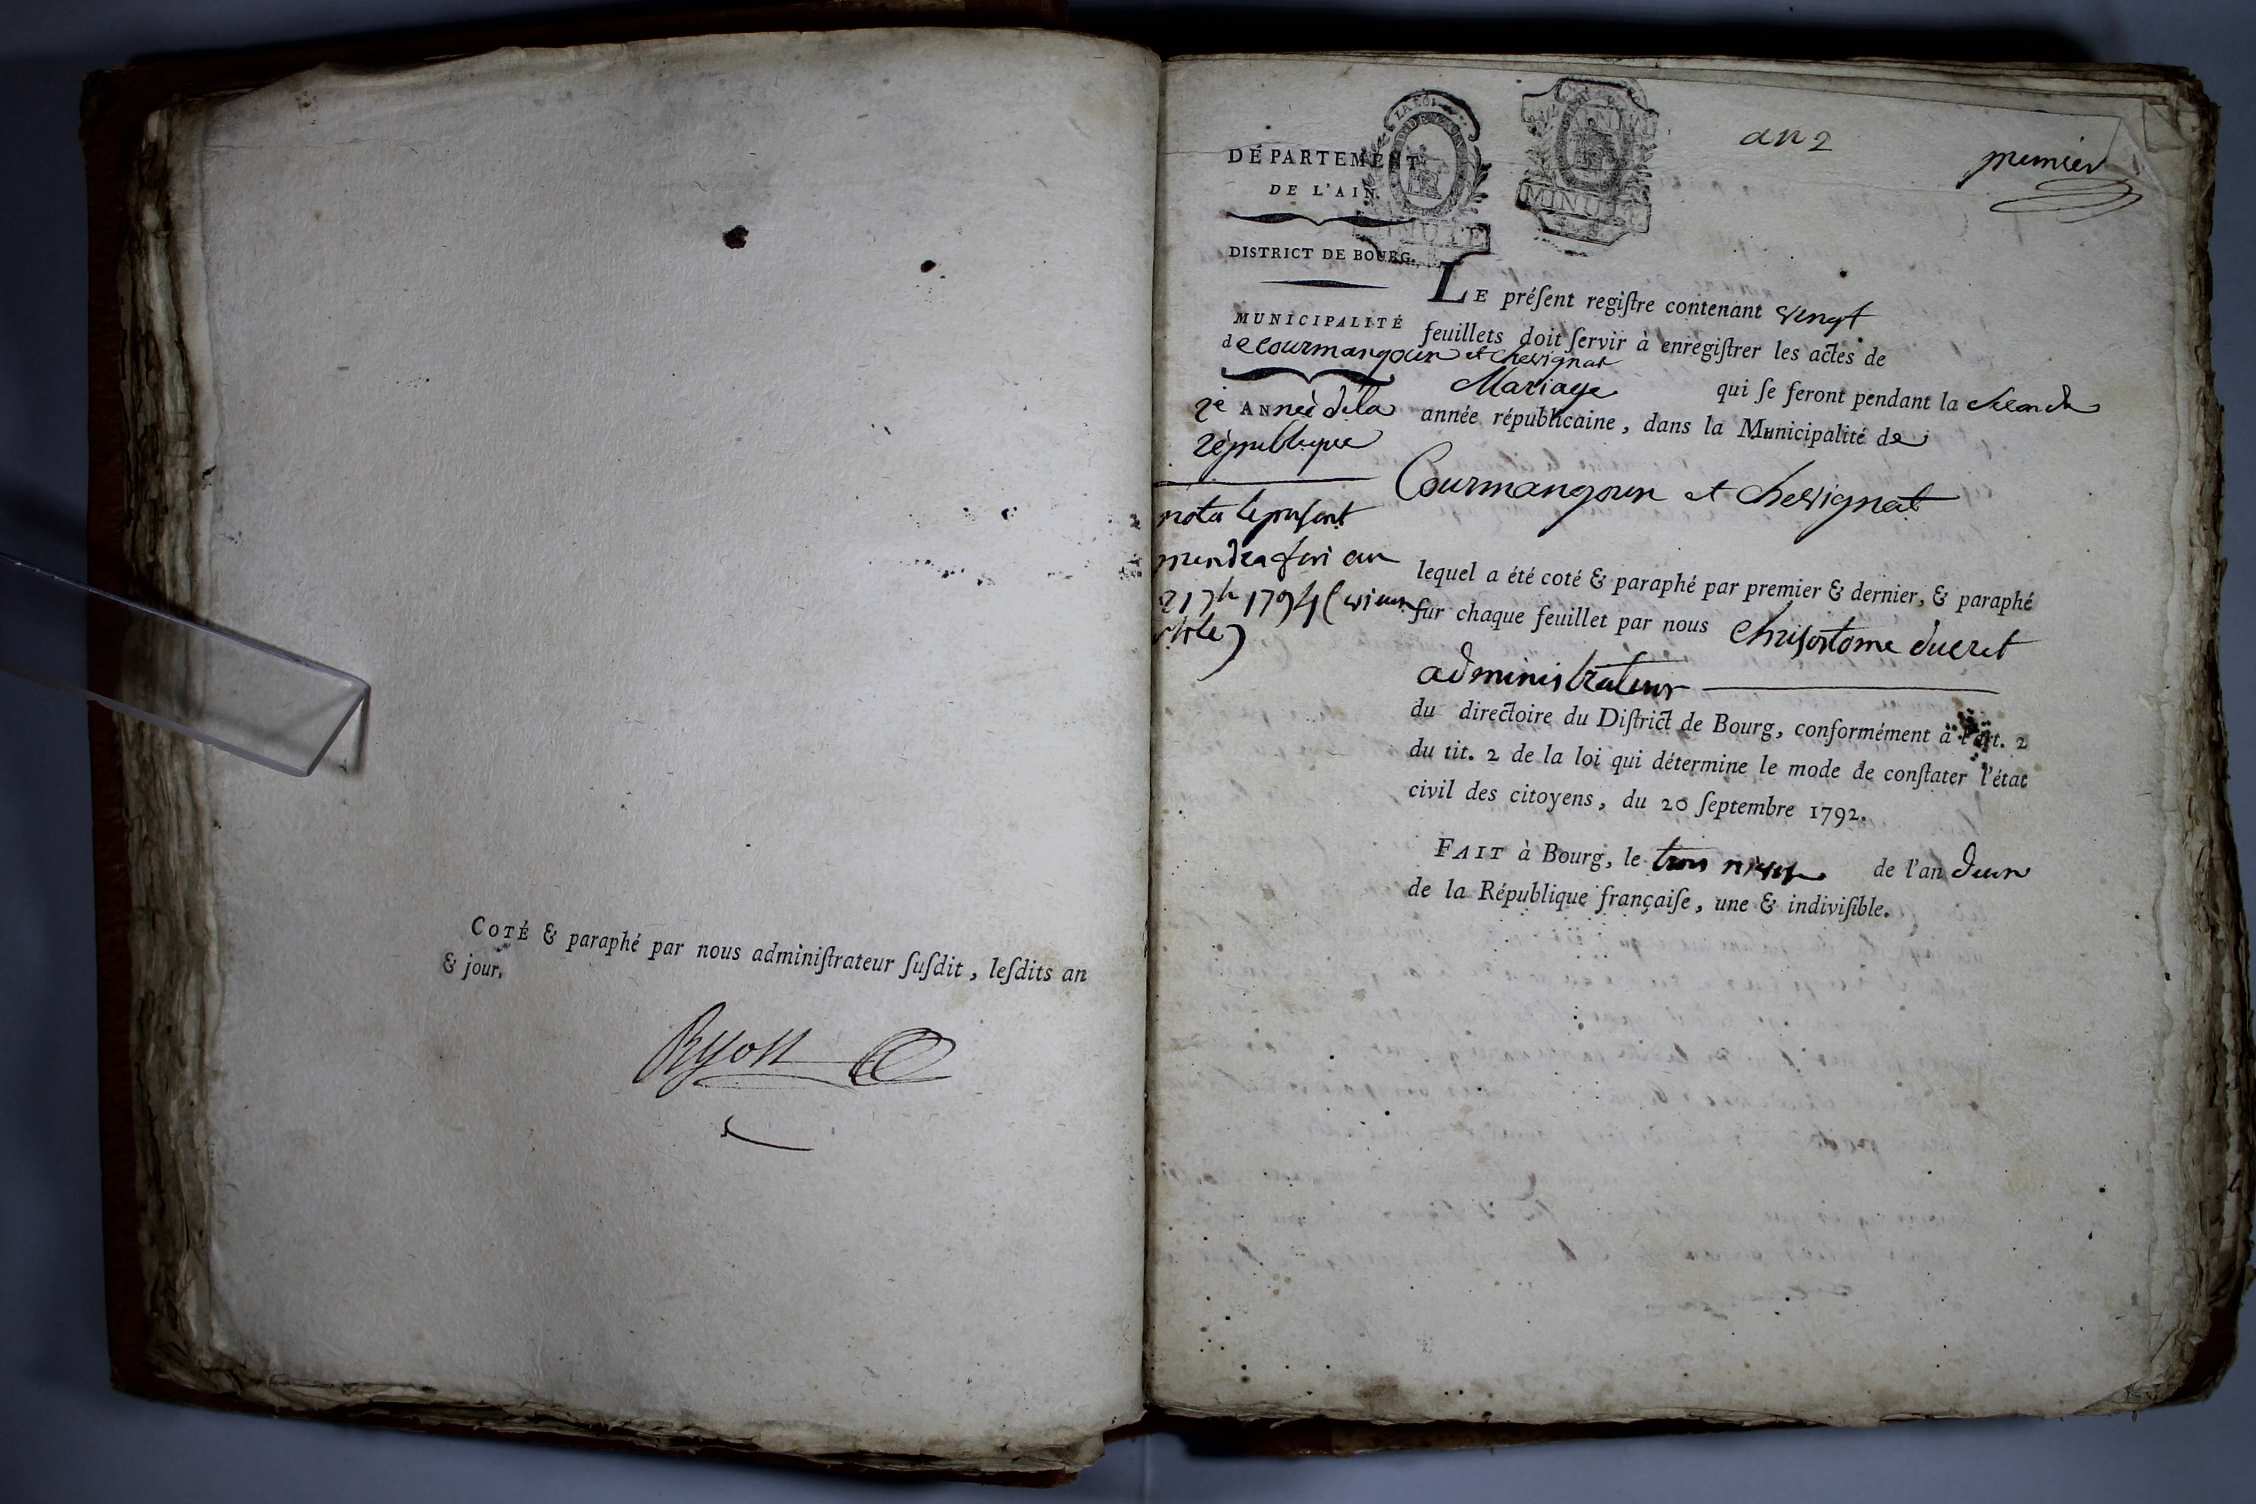 COTÉ & paraphé par nous adminiſtrateur ſuſdit, leſdits an
& jour.
an 2
premier
DÉPARTEMENT
DE L'AIN.
MINUTE
MINUTE
DISTRICT DE BOURG.
MUNICIPALITÉ
de Courmangoux et Chevignat
2e ANnée de la
République
nota le présent
prendra fin au
21 7bre 1794 (vieux
stile)
LE préſent regiſtre contenant vingt
feuillets doit ſervir à enregiſtrer les actes de
Mariage qui ſe feront pendant la seconde
année républicaine, dans la Municipalité de
Courmangoux et Chevignat
lequel a été coté & paraphé par premier & dernier, & paraphé
ſur chaque feuillet par nous Chrisostome ducret
administrateur
du directoire du Diſtrict de Bourg, conformément à l'art. 2
du tit. 2 de la loi qui détermine le mode de conſtater l'état
civil des citoyens, du 20 ſeptembre 1792.
FAIT à Bourg, le trois nivose de l'an deux
de la République françaiſe, une & indiviſible.